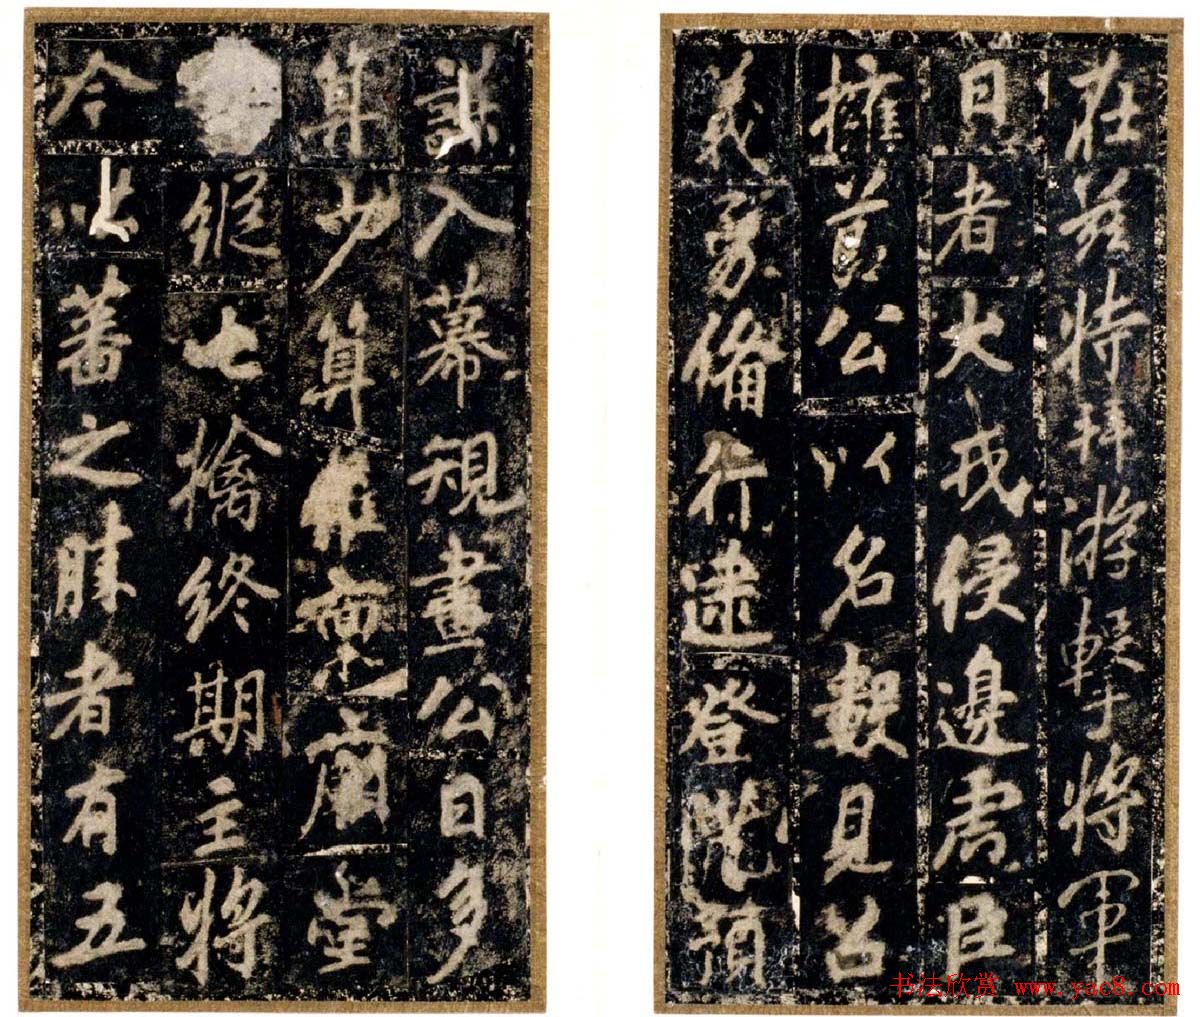 在茲特拜游擊將軍
日者犬戎侵邊虎臣
擁節公以名數見召
義勇備行逮登隴預
謀入幕規畫公曰多
算少算雖廟堂
縱七擒終期主將
今此蕃之勝者有五
书法欣赏 www.yac8.com